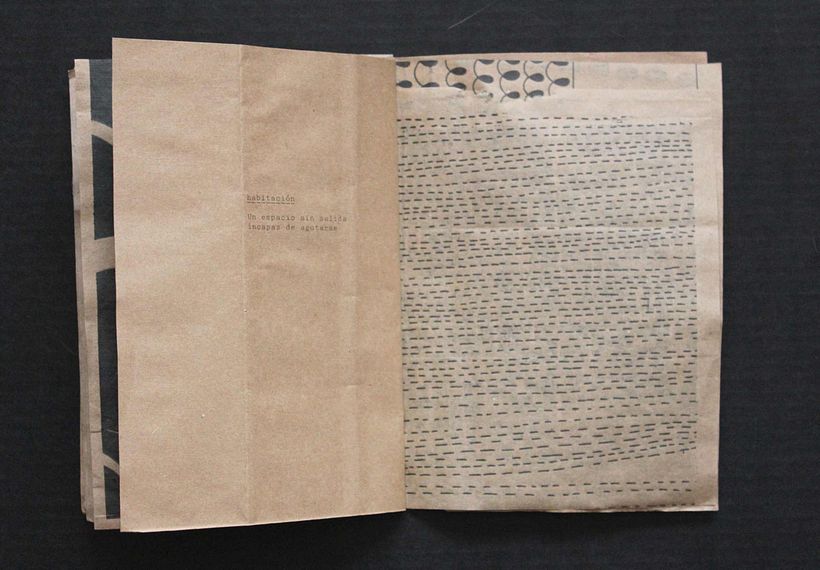 habitación
Un espacio sin salida
incapaz de agotarse